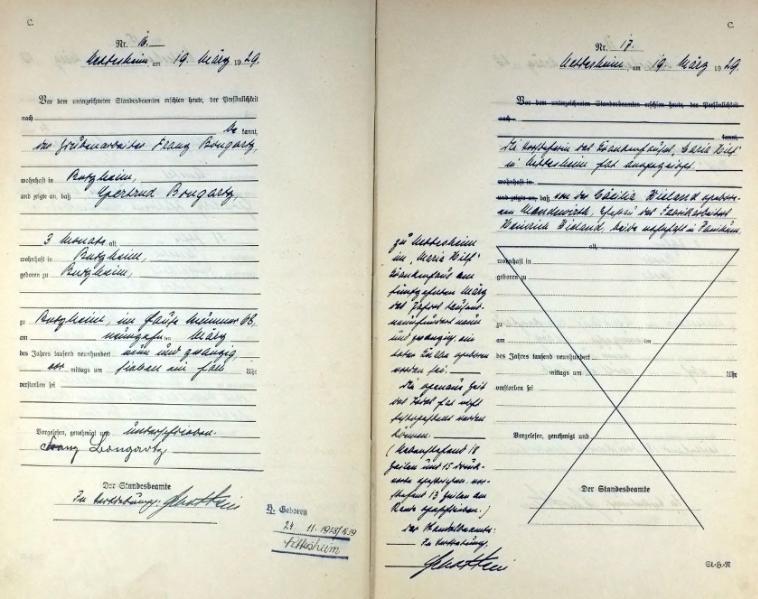 C.
Nr. 16.
Nettesheim, am 19. März 1929.
Vor dem unterzeichneten Standesbeamten erschien heute, der Persönlichkeit
nach
be kannt,
der Grubenarbeiter Franz Bongartz,
wohnhaft in Butzheim,
und zeigte an, daß Gertrud Bongartz,
3 Monate alt,
wohnhaft in Butzheim,
geboren zu Butzheim,
zu Butzheim, im Hause Nummer
am neunzehnten März
des Jahres tausend neunhundert neun und zwanzig
vor mittags um sieben ein halb Uhr
verstorben sei
Vorgelesen, genehmigt und unterschrieben.
Franz Bongartz
Der Standesbeamte
In Vertretung:
Geboren
24 11. 1928
Nettesheim
C.
Nr. 17.
Nettesheim, am 19. März 1929.
Vor dem unterzeichneten Standesbeamten erschien heute, der Persönlichkeit
nach
kannt,
Die Vorsteherin des Krankenhauses "Maria Hilf"
in Nettesheim hat angezeigt,
wohnhaft in
und zeigte an, daß von der Cäcilia Wieland geborenen
Ehefrau des Fabrikarbeiters
Heinrich Wieland, beide wohnhaft in
alt,
zu Nettesheim
im "Maria Hilf"
Krankenhaus am
fünfzehnten März
des Jahres tausend
neunhundert neun
und zwanzig ein
totes Kind geboren
worden sei.
Die genaue Zeit
des Todes hat nicht
festgestellt werden
können.
(Nebenstehend 18
Zeilen und 15 Druck-
worte gestrichen, vor-
stehend 13 Zeilen am
Rande geschrieben.)
Der Standesbeamte:
In Vertretung,
wohnhaft in
geboren zu
zu
am ten
des Jahres tausend neunhundert
mittags um Uhr
verstorben sei
Vorgelesen, genehmigt und
Der Standesbeamte
St.-H.-R